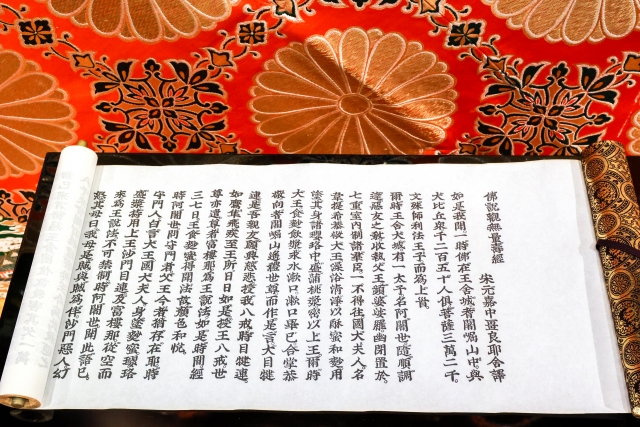 佛説觀無量壽經　宋元嘉中畺良耶舍譯
如是我聞一時佛在王舍城耆闍崛山中與
大比丘衆千二百五十人俱菩薩三萬二千
文殊師利法王子而爲上首
爾時王舍大城有一太子名阿闍世隨順調
達惡友之敎收執父王頻婆娑羅幽閉置於
七重室内制諸羣臣一不得往國大夫人名
韋提希恭敬大王澡浴淸淨以酥蜜和麨用
塗其身諸瓔珞中盛蒲桃漿密以上王爾時
大王食麨飮漿求水漱口漱口畢已合掌恭
敬向耆闍崛山遙禮世尊而作是言大目犍
連是吾親友願興慈悲授我八戒時目犍連
如鷹隼飛疾至王所日日如是授王八戒世
尊亦遣尊者富樓那爲王説法如是時間經
三七日王食麨蜜得聞法故顏色和悅
時阿闍世問守門者父王今者猶存在耶時
守門人白言大王國大夫人身塗麨蜜瓔珞
盛漿持用上王沙門目連及富樓那從空而
來爲王説法不可禁制時阿闍世聞此語已
怒其母曰我母是賊與賊爲伴沙門惡人幻